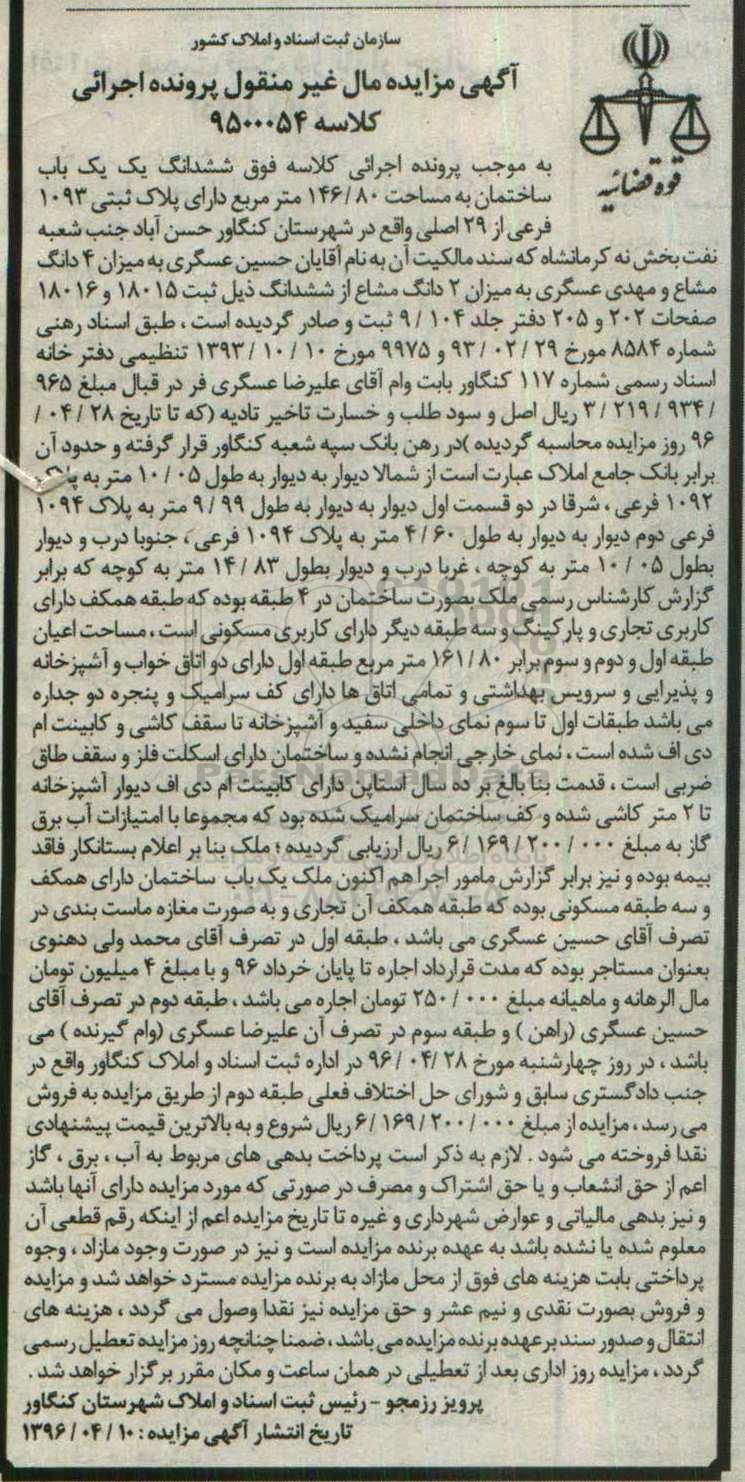 سازمان ثبت اسناد و املاک کشور
آگهی مزایده مال غیر منقول پرونده اجرائی
کلاسه ۹۵۰۰۰۵۴
قوه قضائیه
به موجب پرونده اجرائی کلاسه فوق ششدانگ یک یک باب
ساختمان به مساحت ۱۴۶/۸۰ متر مربع دارای پلاک ثبتی ۱۰۹۳
فرعی از ۲۹ اصلی واقع در شهرستان کنگاور حسن آباد جنب شعبه
نفت بخش نه کرمانشاه که سند مالکیت آن به نام آقایان حسین عسگری به میزان ۴ دانگ
مشاع و مهدی عسگری به میزان ۲ دانگ مشاع از ششدانگ ذیل ثبت ۱۸۰۱۵ و ۱۸۰۱۶
صفحات ۲۰۲ و ۲۰۵ دفتر جلد ۱۰۴ / ۹ ثبت و صادر گردیده است ، طبق اسناد رهنی
شماره ۸۵۸۴ مورخ ۲۹ / ۰۲ / ۹۳ و ۹۹۷۵ مورخ ۱۰ / ۱۰ / ۱۳۹۳ تنظیمی دفتر خانه
اسناد رسمی شماره ۱۱۷ کنگاور بابت وام آقای علیرضا عسگری فر در قبال مبلغ ۹۶۵
/ ۹۳۴ / ۲۱۹ / ۳ ریال اصل و سود طلب و خسارت تاخیر تادیه (که تا تاریخ ۲۸ / ۰۴ /
۹۶ روز مزایده محاسبه گردیده )در رهن بانک سپه شعبه کنگاور قرار گرفته و حدود آن
برابر بانک جامع املاک عبارت است از شمالا دیوار به دیوار به طول ۰۵ / ۱۰ متر به پلاک
۱۰۹۲ فرعی ، شرقا در دو قسمت اول دیوار به دیوار به طول ۹۹ / ۹ متر به پلاک ۱۰۹۴
فرعی دوم دیوار به دیوار به طول ۶۰ / ۴ متر به پلاک ۱۰۹۴ فرعی ، جنوبا درب و دیوار
بطول ۰۵ / ۱۰ متر به کوچه ، غربا درب و دیوار بطول ۸۳ / ۱۴ متر به کوچه که برابر
گزارش کارشناس رسمی ملک بصورت ساختمان در ۴ طبقه بوده که طبقه همکف دارای
کاربری تجاری و پارکینگ و سه طبقه دیگر دارای کاربری مسکونی است ، مساحت اعیان
طبقه اول و دوم و سوم برابر ۸۰ / ۱۶۱ متر مربع طبقه اول دارای دو اتاق خواب و آشپزخانه
و پذیرایی و سرویس بهداشتی و تمامی اتاق ها دارای کف سرامیک و پنجره دو جداره
می باشد طبقات اول تا سوم نمای داخلی سفید و آشپزخانه تا سقف کاشی و کابینت ام
دی اف شده است ، نمای خارجی انجام نشده و ساختمان دارای اسکلت فلز و سقف طاق
ضربی است ، قدمت بنا بالغ بر ده سال استاپن دارای کابینت ام دی اف دیوار آشپزخانه
تا ۲ متر کاشی شده و کف ساختمان سرامیک شده بود که مجموعا با امتیازات آب برق
گاز به مبلغ ۰۰۰ / ۲۰۰ / ۱۶۹ / ۶ ریال ارزیابی گردیده ؛ ملک بنا بر اعلام بستانکار فاقد
بیمه بوده و نیز برابر گزارش مامور اجرا هم اکنون ملک یک باب ساختمان دارای همکف
و سه طبقه مسکونی بوده که طبقه همکف آن تجاری و به صورت مغازه ماست بندی در
تصرف آقای حسین عسگری می باشد ، طبقه اول در تصرف آقای محمد ولی دهنوی
بعنوان مستاجر بوده که مدت قرارداد اجاره تا پایان خرداد ۹۶ و با مبلغ ۴ میلیون تومان
مال الرهانه و ماهیانه مبلغ ۰۰۰ / ۲۵۰ تومان اجاره می باشد ، طبقه دوم در تصرف آقای
حسین عسگری (راهن ) و طبقه سوم در تصرف آن علیرضا عسگری (وام گیرنده ) می
باشد ، در روز چهارشنبه مورخ ۲۸ / ۰۴ / ۹۶ در اداره ثبت اسناد و املاک کنگاور واقع در
جنب دادگستری سابق و شورای حل اختلاف فعلی طبقه دوم از طریق مزایده به فروش
می رسد ، مزایده از مبلغ ۰۰۰ / ۲۰۰ / ۱۶۹ / ۶ ریال شروع و به بالاترین قیمت پیشنهادی
نقدا فروخته می شود . لازم به ذکر است پرداخت بدهی های مربوط به آب ، برق ، گاز
اعم از حق انشعاب و یا حق اشتراک و مصرف در صورتی که مورد مزایده دارای آنها باشد
و نیز بدهی مالیاتی و عوارض شهرداری و غیره تا تاریخ مزایده اعم از اینکه رقم قطعی آن
معلوم شده یا نشده باشد به عهده برنده مزایده است و نیز در صورت وجود مازاد ، وجوه
پرداختی بابت هزینه های فوق از محل مازاد به برنده مزایده مسترد خواهد شد و مزایده
و فروش بصورت نقدی و نیم عشر و حق مزایده نیز نقدا وصول می گردد ، هزینه های
انتقال و صدور سند بر عهده برنده مزایده می باشد ، ضمنا چنانچه روز مزایده تعطیل رسمی
گردد ، مزایده روز اداری بعد از تعطیلی در همان ساعت و مکان مقرر برگزار خواهد شد .
پرویز رزمجو - رئیس ثبت اسناد و املاک شهرستان کنگاور
تاریخ انتشار آگهی مزایده : ۱۰ / ۰۴ / ۱۳۹۶
ParsNamadData